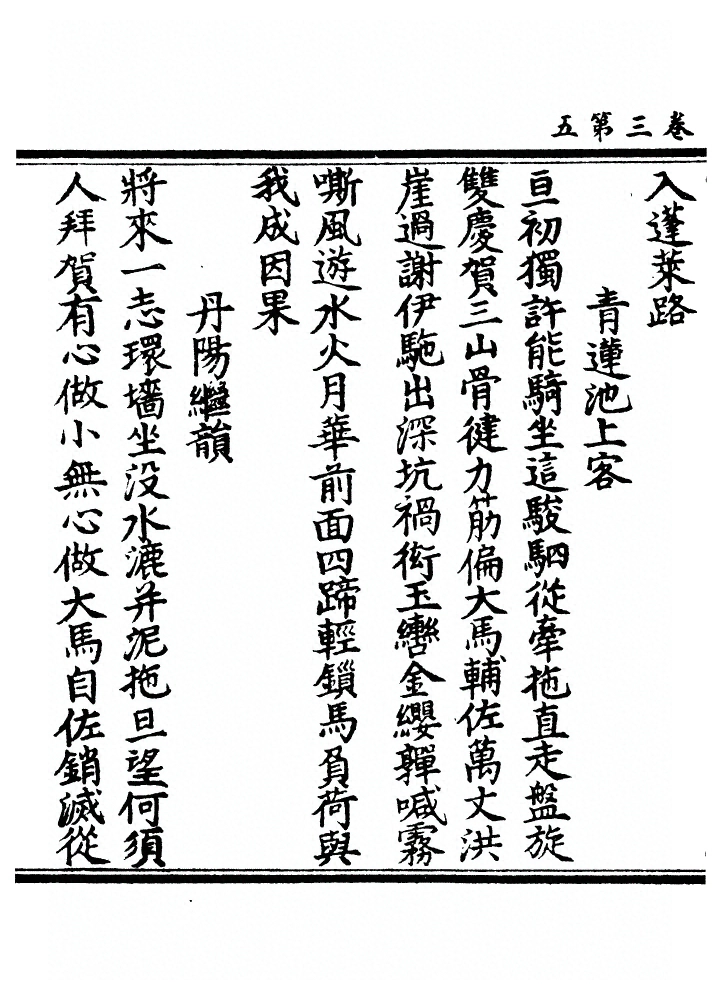 卷三第五
入蓬萊路
青蓮池上客
亘初獨許能騎坐這駿駟從牽拖直走盤旋
雙慶賀三山骨徤力筋偏大馬輔佐萬丈洪
崖過謝伊馳出深坑禍銜玉轡金纓韗喊霧
嘶風遊水火月華前面四蹄輕鎖馬負荷與
我成因果
丹陽繼韻
將來一志環墻坐没水漉并泥拖旦望何須
人拜賀有心做小無心做大馬自佐銷滅從